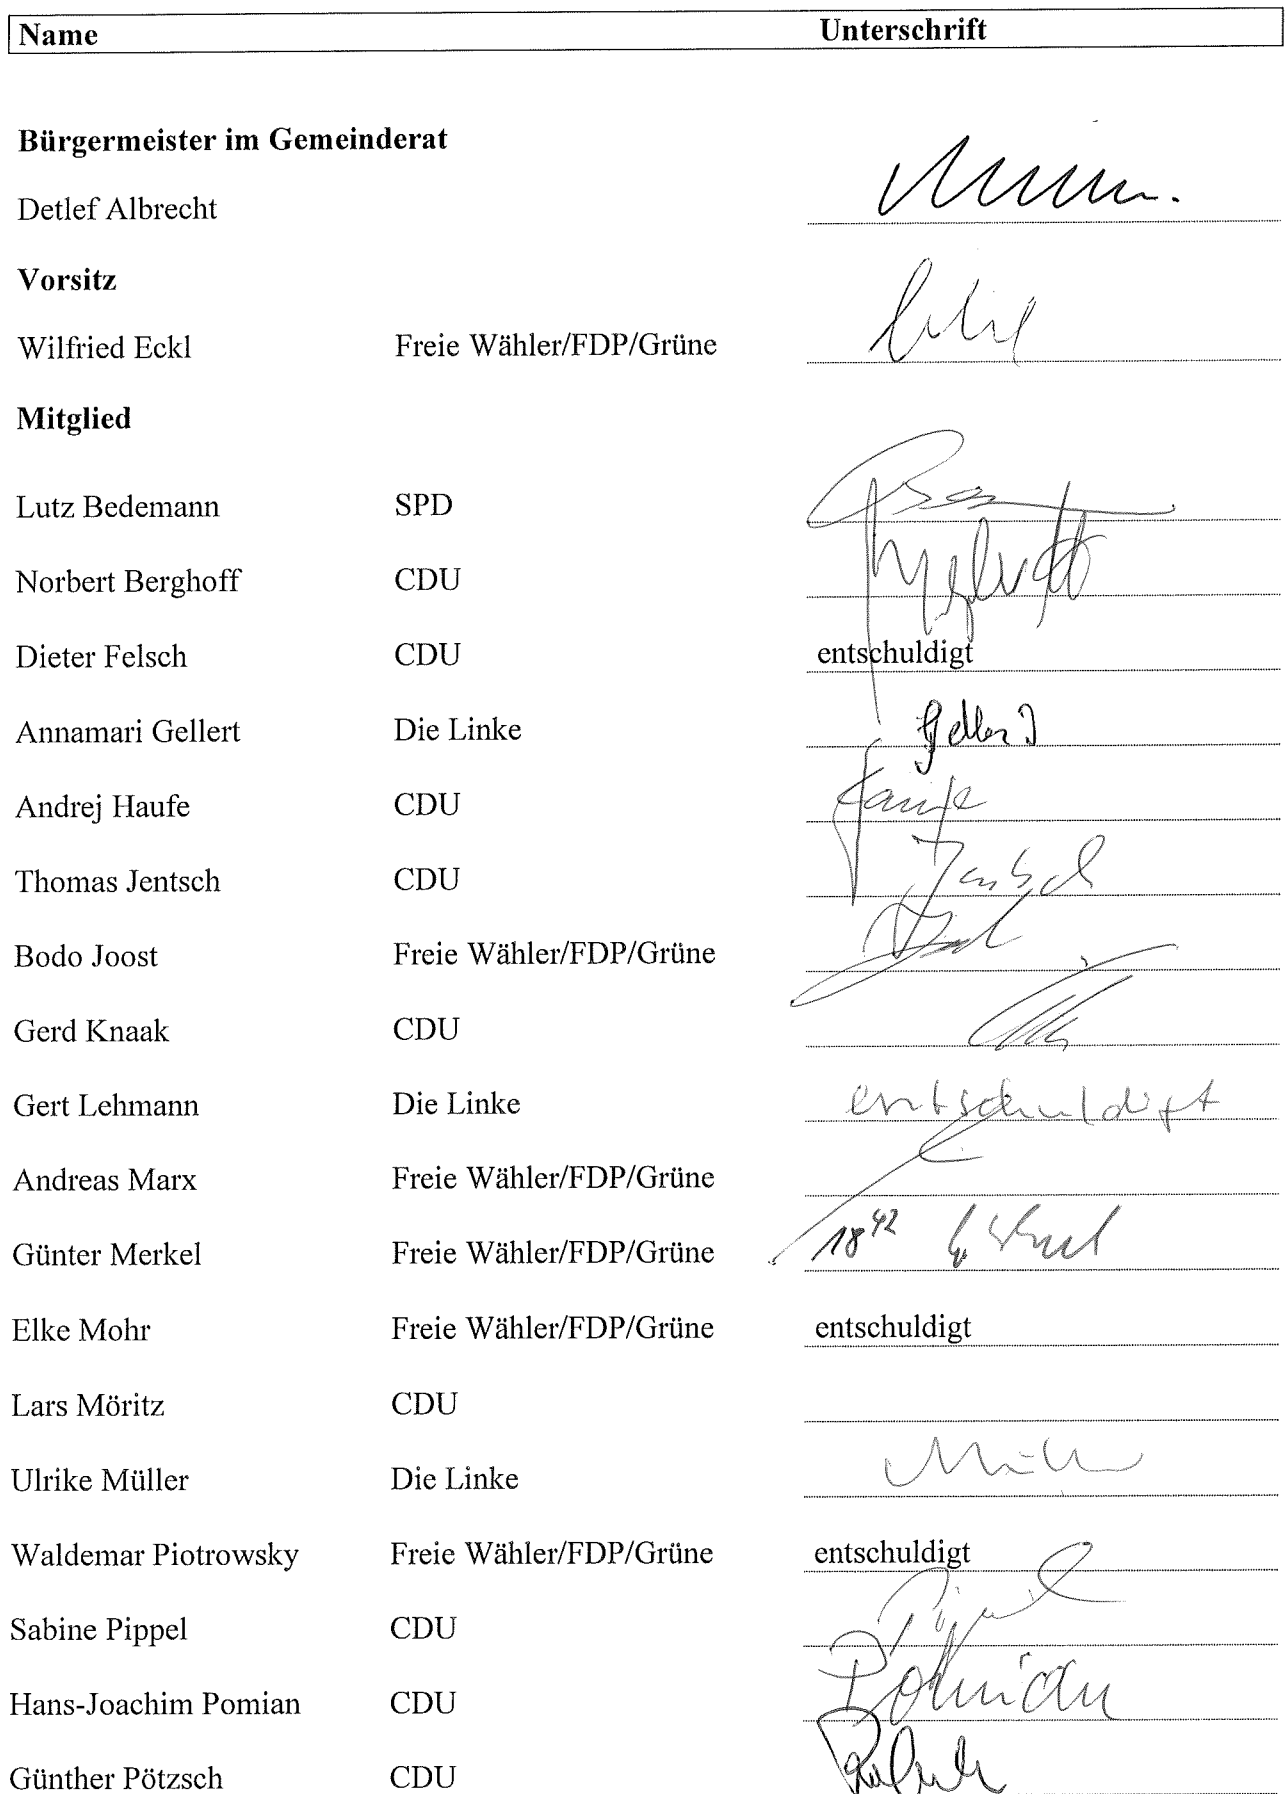 Name Unterschrift
Bürgermeister im Gemeinderat
Detlef Albrecht
Vorsitz
Wilfried Eckl Freie Wähler/FDP/Grüne
Mitglied
Lutz Bedemann SPD
Norbert Berghoff CDU
Dieter Felsch CDU entschuldigt
Annamari Gellert Die Linke
Andrej Haufe CDU
Thomas Jentsch CDU Jentsch
Bodo Joost Freie Wähler/FDP/Grüne
Gerd Knaak CDU
Gert Lehmann Die Linke entschuldigt
Andreas Marx Freie Wähler/FDP/Grüne
Günter Merkel Freie Wähler/FDP/Grüne 18⁴²
Elke Mohr Freie Wähler/FDP/Grüne entschuldigt
Lars Möritz CDU
Ulrike Müller Die Linke
Waldemar Piotrowsky Freie Wähler/FDP/Grüne entschuldigt
Sabine Pippel CDU
Hans-Joachim Pomian CDU Pomian
Günther Pötzsch CDU